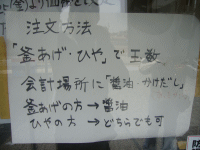 注文方法
「釜あげ・ひや」で玉数
会計場所に「醤油・かけだし」
釜あげの方→醤油
ひやの方→どちらでも可